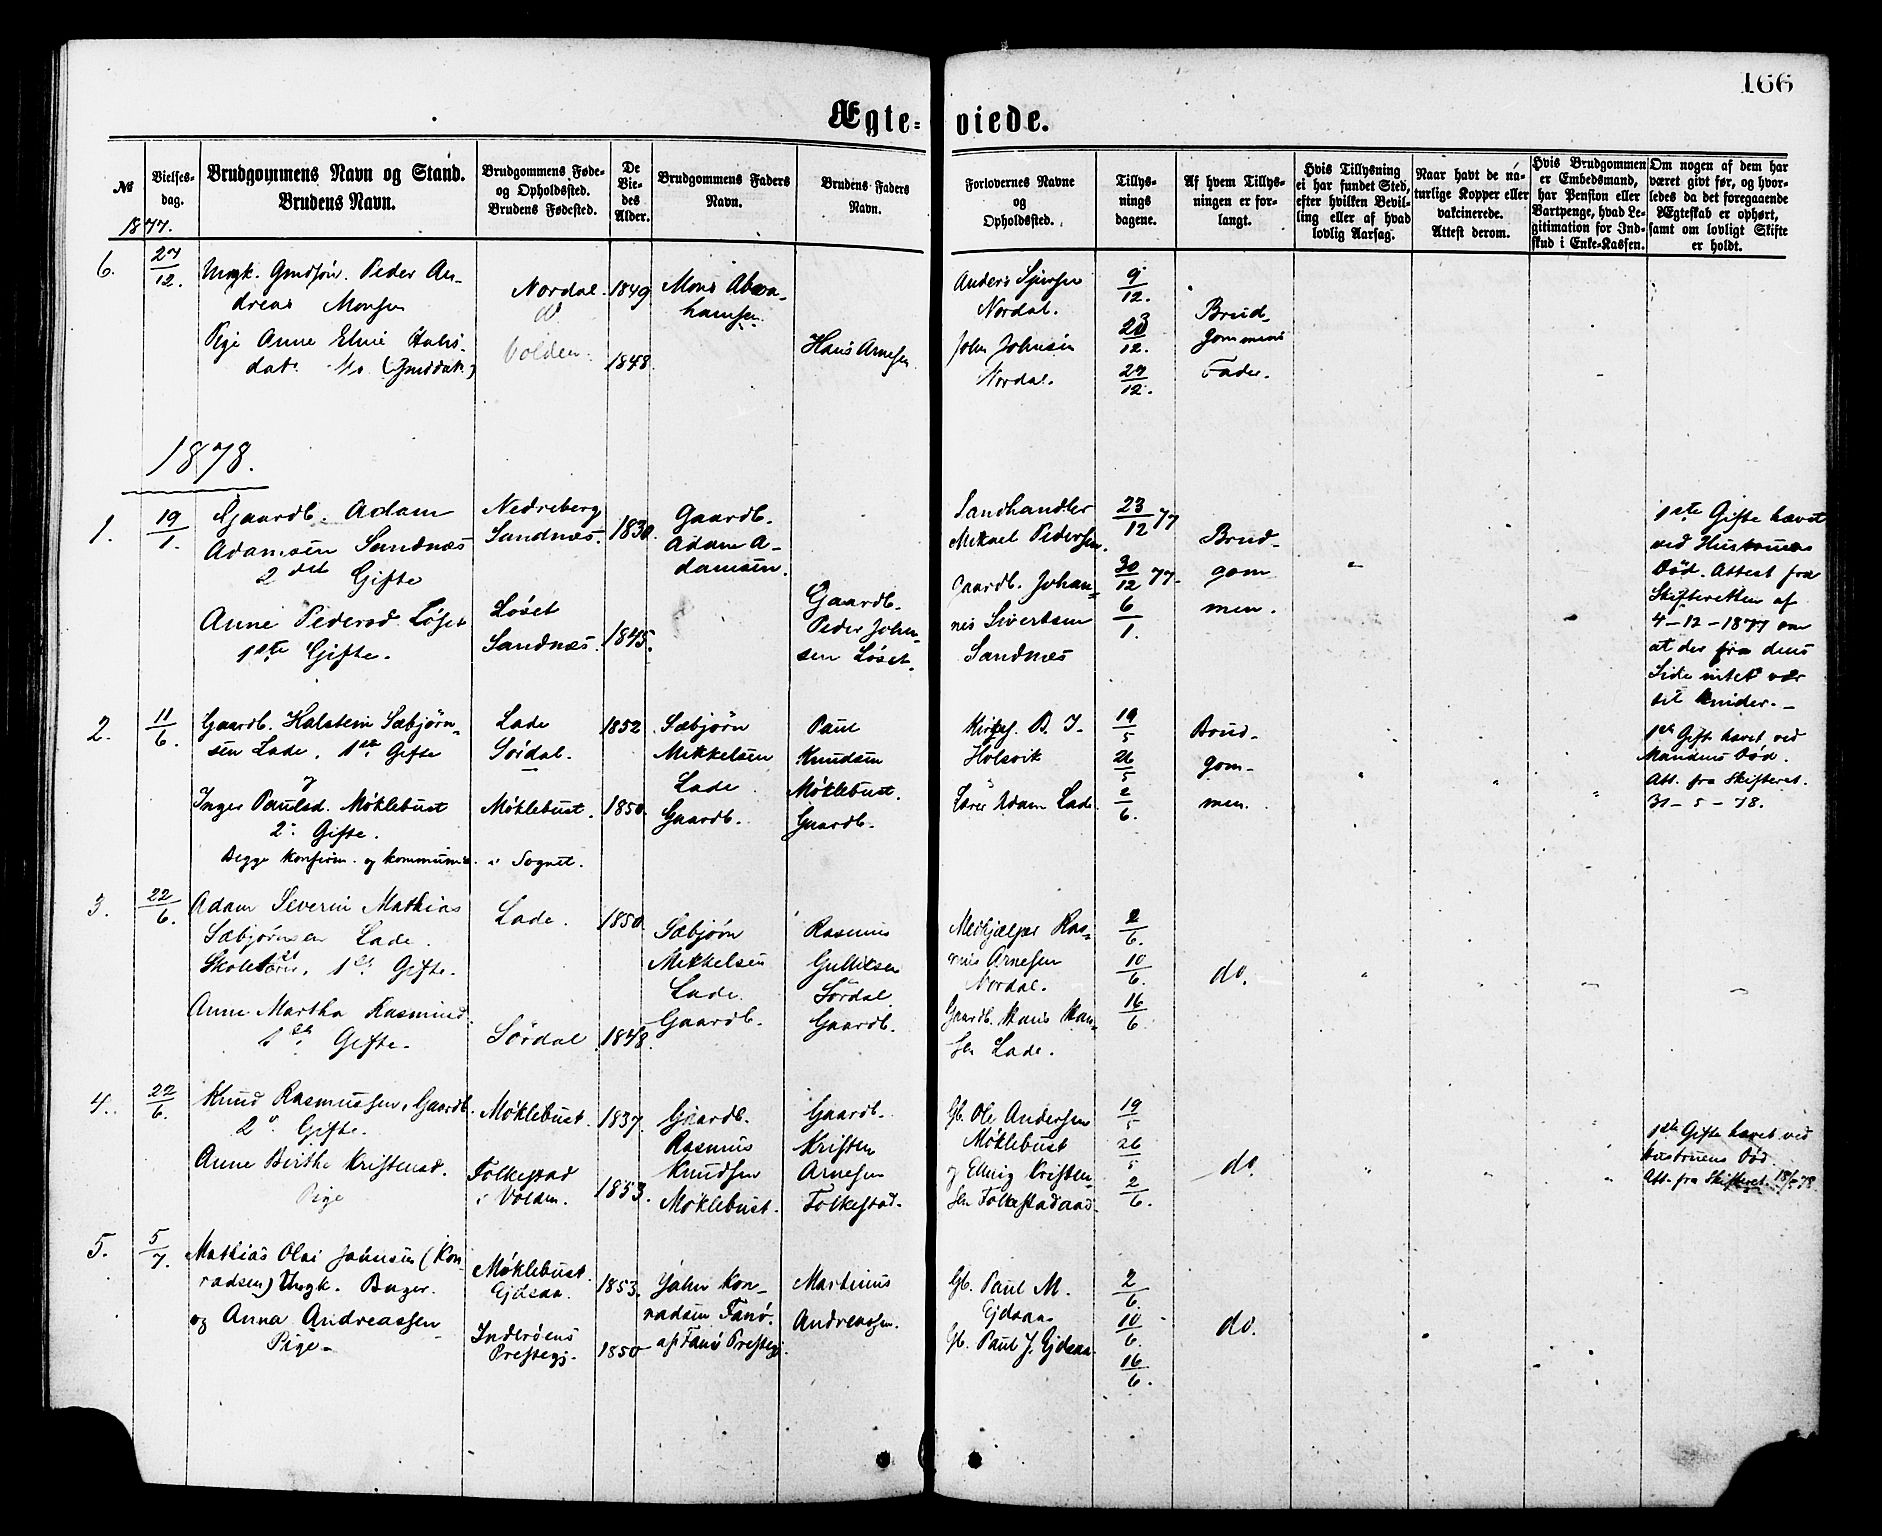 166
Ægte-viede.
No
1877.
Vielses-
dag.
Brudgommens Navn og Stand.
Brudens Navn.
Brudgommens Føde-
og Opholdssted.
Brudens Fødested.
De
Vie-
des
Alder.
Brudgommens Faders
Navn.
Brudens Faders
Navn.
Forlovernes Navne
og
Opholdssted.
Tillys-
nings
dagene.
Af hvem Tillys-
ningen er for-
langt.
Hvis Tillysning
ei har fundet Sted,
efter hvilken Bevil-
ling eller af hvad
lovlig Aarsag.
Naar havt de na-
turlige Kopper eller
vakcinerede.
Attest derom.
Hvis Brudgommen
er Embedsmand,
har Pension eller
Vartpenge, hvad Le-
gitimation for Ind-
skud i Enke-Kassen.
Om nogen af dem har
været givt før, og hvor-
ledes da det foregaaende
Ægteskab er ophørt,
samt om lovligt Skifte
er holdt.
6.
27/12.
Ungk. Gmdsøn. Peder An-
dreas Monsen
Pige Anne Eline Hans-
dat.
Nordal.
do
Volden.
1849
1848
Mons Abra-
hamsen
Hans Arnesen
Anders
Nordal.
John Johnsen
Nordal.
9/12.
23/12.
27/12.
Brud-
gommens
Fader.
1878.
1.
19/1.
Gaardb. Adam
Adamsen Sandnæs
2det Gifte
Anne Pedersd. Løset
1ste Gifte.
Nedreberg
Sandnæs.
Løset
Sandnæs.
1830.
1845.
Gaardb.
Adam A-
damsen.
Gaardb.
Peder John-
sen Løset.
Landhandler
Mikael Pedersen.
Gaardb. Johan-
nes Sivertsen
Sandnæs
23/12 77
30/12 77.
6/1.
Brud-
gom
men.
1ste Gifte hævet
ved Hustruens
Død. Attest fra
Skifteretten af
4-12-1877 om
at der fra dens
Side intet var
til Hinder. -
2.
11/6.
Gaardb. Halstein Sæbjørn-
sen Lade, 1ste Gifte
Inger Paulsd. Møklebust
2. Gifte.
Begge konfirm. og kommunic. i Sognet.
Lade
Sørdal.
Møklebust.
1852
1850.
Sæbjørn
Mikkelsen
Lade
Gaardb.
Paul
Knudsen
Møklebust.
Gaardb.
Kirkes. B. J.
Holsvik
Lærer Adam Lade.
19/5
26/5
2/6.
Brud-
gom-
men.
1ste Gifte hævet ved
Mandens Død.
Att. fra Skifteret.
31-5-78.
3.
22/6.
Adam Severin Mathias
Sæbjørnsen Lade.
Skolelærer, 1ste Gifte.
Anne Martha Rasmusd.
1ste Gifte.
Lade.
Sørdal
1850
1848.
Sæbjørn
Mikkelsen
Lade
Gaardb.
Rasmus
Gulliksen
Sørdal
Gaardb.
Medhjælper Ras-
mus Arnesen
Nordal.
Gaardb. Hans Han-
sen Lade.
2/6.
10/6.
16/6
do.
4.
22/6.
Knud Rasmussen, Gaardb.
2. Gifte.
Anne Birthe Kristensd.
Pige
Møklebust
Folkestad
i Volden.
1837.
1853.
Gaardb.
Rasmus
Knudsen
Møklebust.
Gaardb.
Kristen
Arnesen
Folkestad.
Gb. Ole Andersen
Møklebust
og Elling Kristen-
sen Folkestad
19/5
26/5
2/6.
do.
1ste Gifte hævet ved
Hustruens Død.
Att. fra Skifteret.
5.
5/7.
Mathias Olai Johnsen (Kon-
radsen) Ungk. Bager.
og Anna Andreassen
Pige.
Møklebust.
Ejdsaa.
Inderøens
Prestegj.
1853.
1850
John Kon-
radsen Fanø.
af Fanø Prestegj.
Martinus
Andreassen.
Gb. Paul M.
Ejdsaa
Gb. Paul J. Ejdsaa
2/6.
10/6.
16/6.
do.